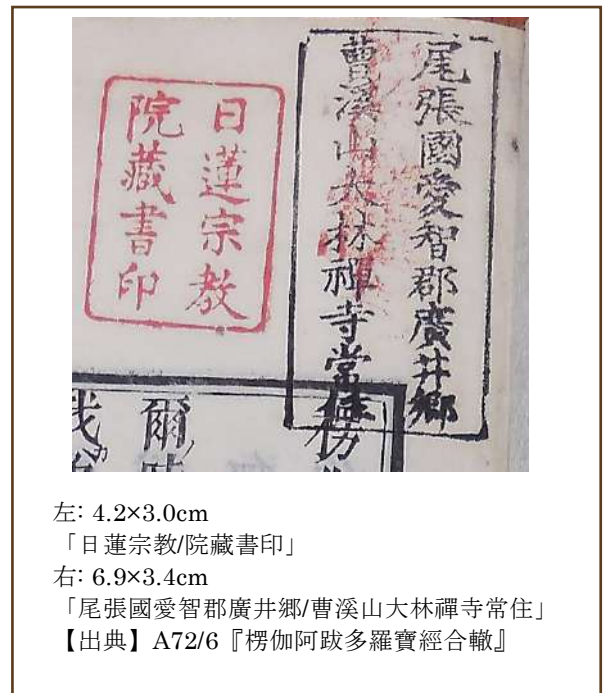 尾張國愛智郡廣井郷
曹溪山大林禪寺常住
日蓮宗教
院藏書印
楞
爾
左: 4.2×3.0cm
「日蓮宗教/院藏書印」
右: 6.9×3.4cm
「尾張國愛智郡廣井郷/曹溪山大林禪寺常住」
【出典】A72/6『楞伽阿跋多羅寶經合轍』